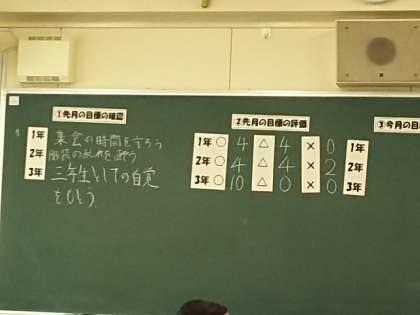 ①先月の目標の確認
1年 集会の時間を守ろう
2年 服装の乱れを直そう
3年 三年生としての自覚
をもとう
②先月の目標の評価
1年 ○ 4 △ 4 × 0
2年 ○ 4 △ 4 × 2
3年 ○ 10 △ 0 × 0
③今月の目
1年
2年
3年